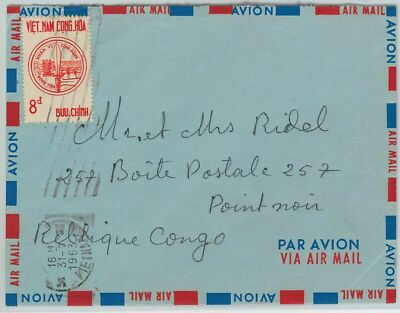 AVION AIR MAIL AVION AIR MAIL AVION AIR MAIL
VIỆT-NAM CỘNG-HÒA
8đ BƯU-CHÍNH
Mr. et Mrs Ridel
257 Boîte Postale 257
Point noir
Reblique Congo
16 H
31-
196
VIETNAM
PAR AVION
VIA AIR MAIL
AIR MAIL AVION AIR MAIL
AIR MAIL AVION AIR MAIL
AVION AIR MAIL AVION AIR MAIL AVION